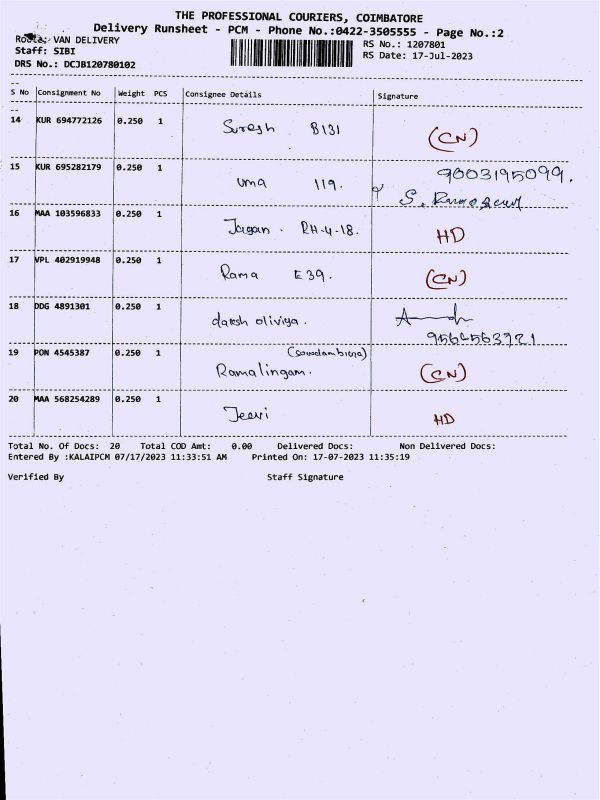 THE PROFESSIONAL COURIERS, COIMBATORE
Delivery Runsheet - PCM - Phone No.:0422-3505555 - Page No.:2
Route: VAN DELIVERY
RS No.: 1207801
Staff: SIBI
RS Date: 17-Jul-2023
DRS No.: DCJB120780102
S No Consignment No Weight PCS Consignee Details Signature
14 KUR 694772126 0.250 1 Suresh B131 (CN)
15 KUR 695282179 0.250 1 Uma 119. 9003195099.
S.
16 MAA 103596833 0.250 1 Jagan . RH-4-18. HD
17 VPL 402919948 0.250 1 Rama E39. (CN)
18 DDG 4891301 0.250 1 daksh oliviya.
19 PON 4545387 0.250 1 Ramalingam. (CN)
20 MAA 568254289 0.250 1 Jeevi HD
Total No. Of Docs: 20 Total COD Amt: 0.00 Delivered Docs: Non Delivered Docs:
Entered By :KALAIPCM 07/17/2023 11:33:51 AM Printed On: 17-07-2023 11:35:19
Verified By Staff Signature